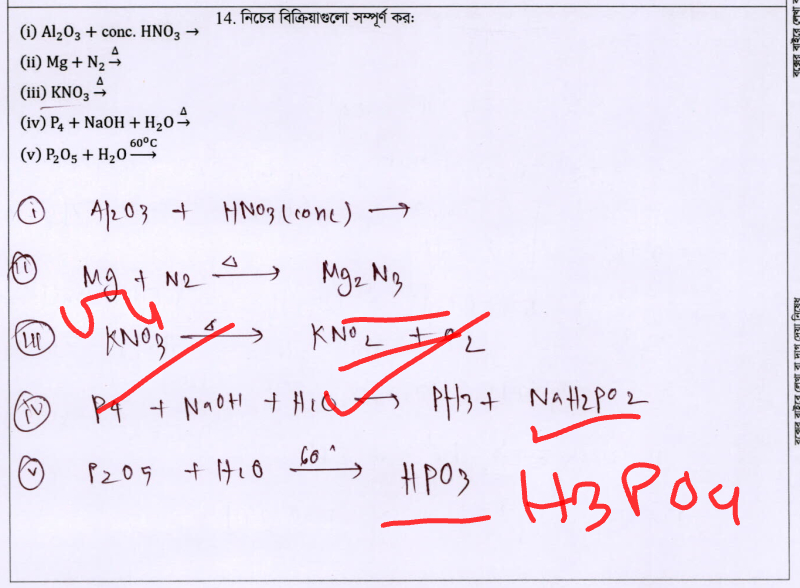 14. নিচের বিক্রিয়াগুলো সম্পূর্ণ কর:
(i) Al₂O₃ + conc. HNO₃ →
(ii) Mg + N₂ →Δ
(iii) KNO₃ →Δ
(iv) P₄ + NaOH + H₂O →Δ
(v) P₂O₅ + H₂O →60⁰C
(i) Al2O3 + HNO3 (conc) →
(ii) Mg + N2 →Δ Mg2N3
(iii) KNO3 →Δ KNO2 + O2
(iv) P4 + NaOH + H2O → PH3 + NaH2PO2
(v) P2O5 + H2O →60° HPO3 H3PO4